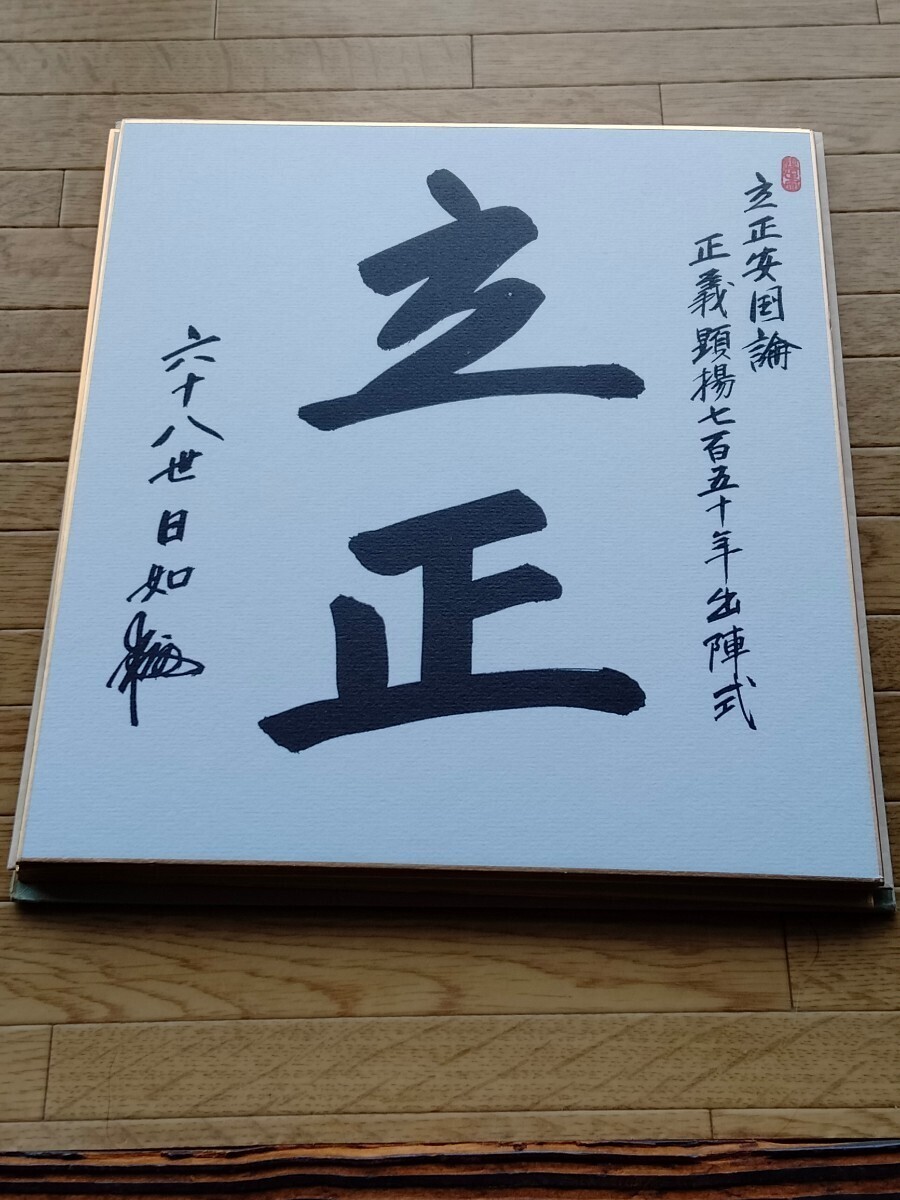 立正安国論
正義顕揚七百五十年出陣式
立正
六十八世日如